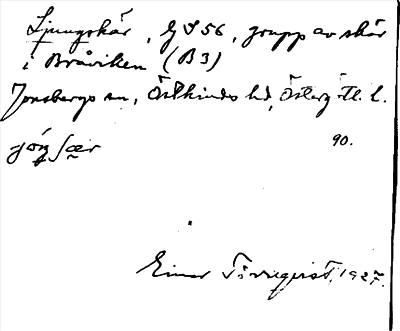 Ljungskär, G S 56, grupp av skär
i Bråviken (B3)
Jonsbergs sn, Östkinds hd, Österg:tl. l.
90.
Einar Törnqvist, 1927.